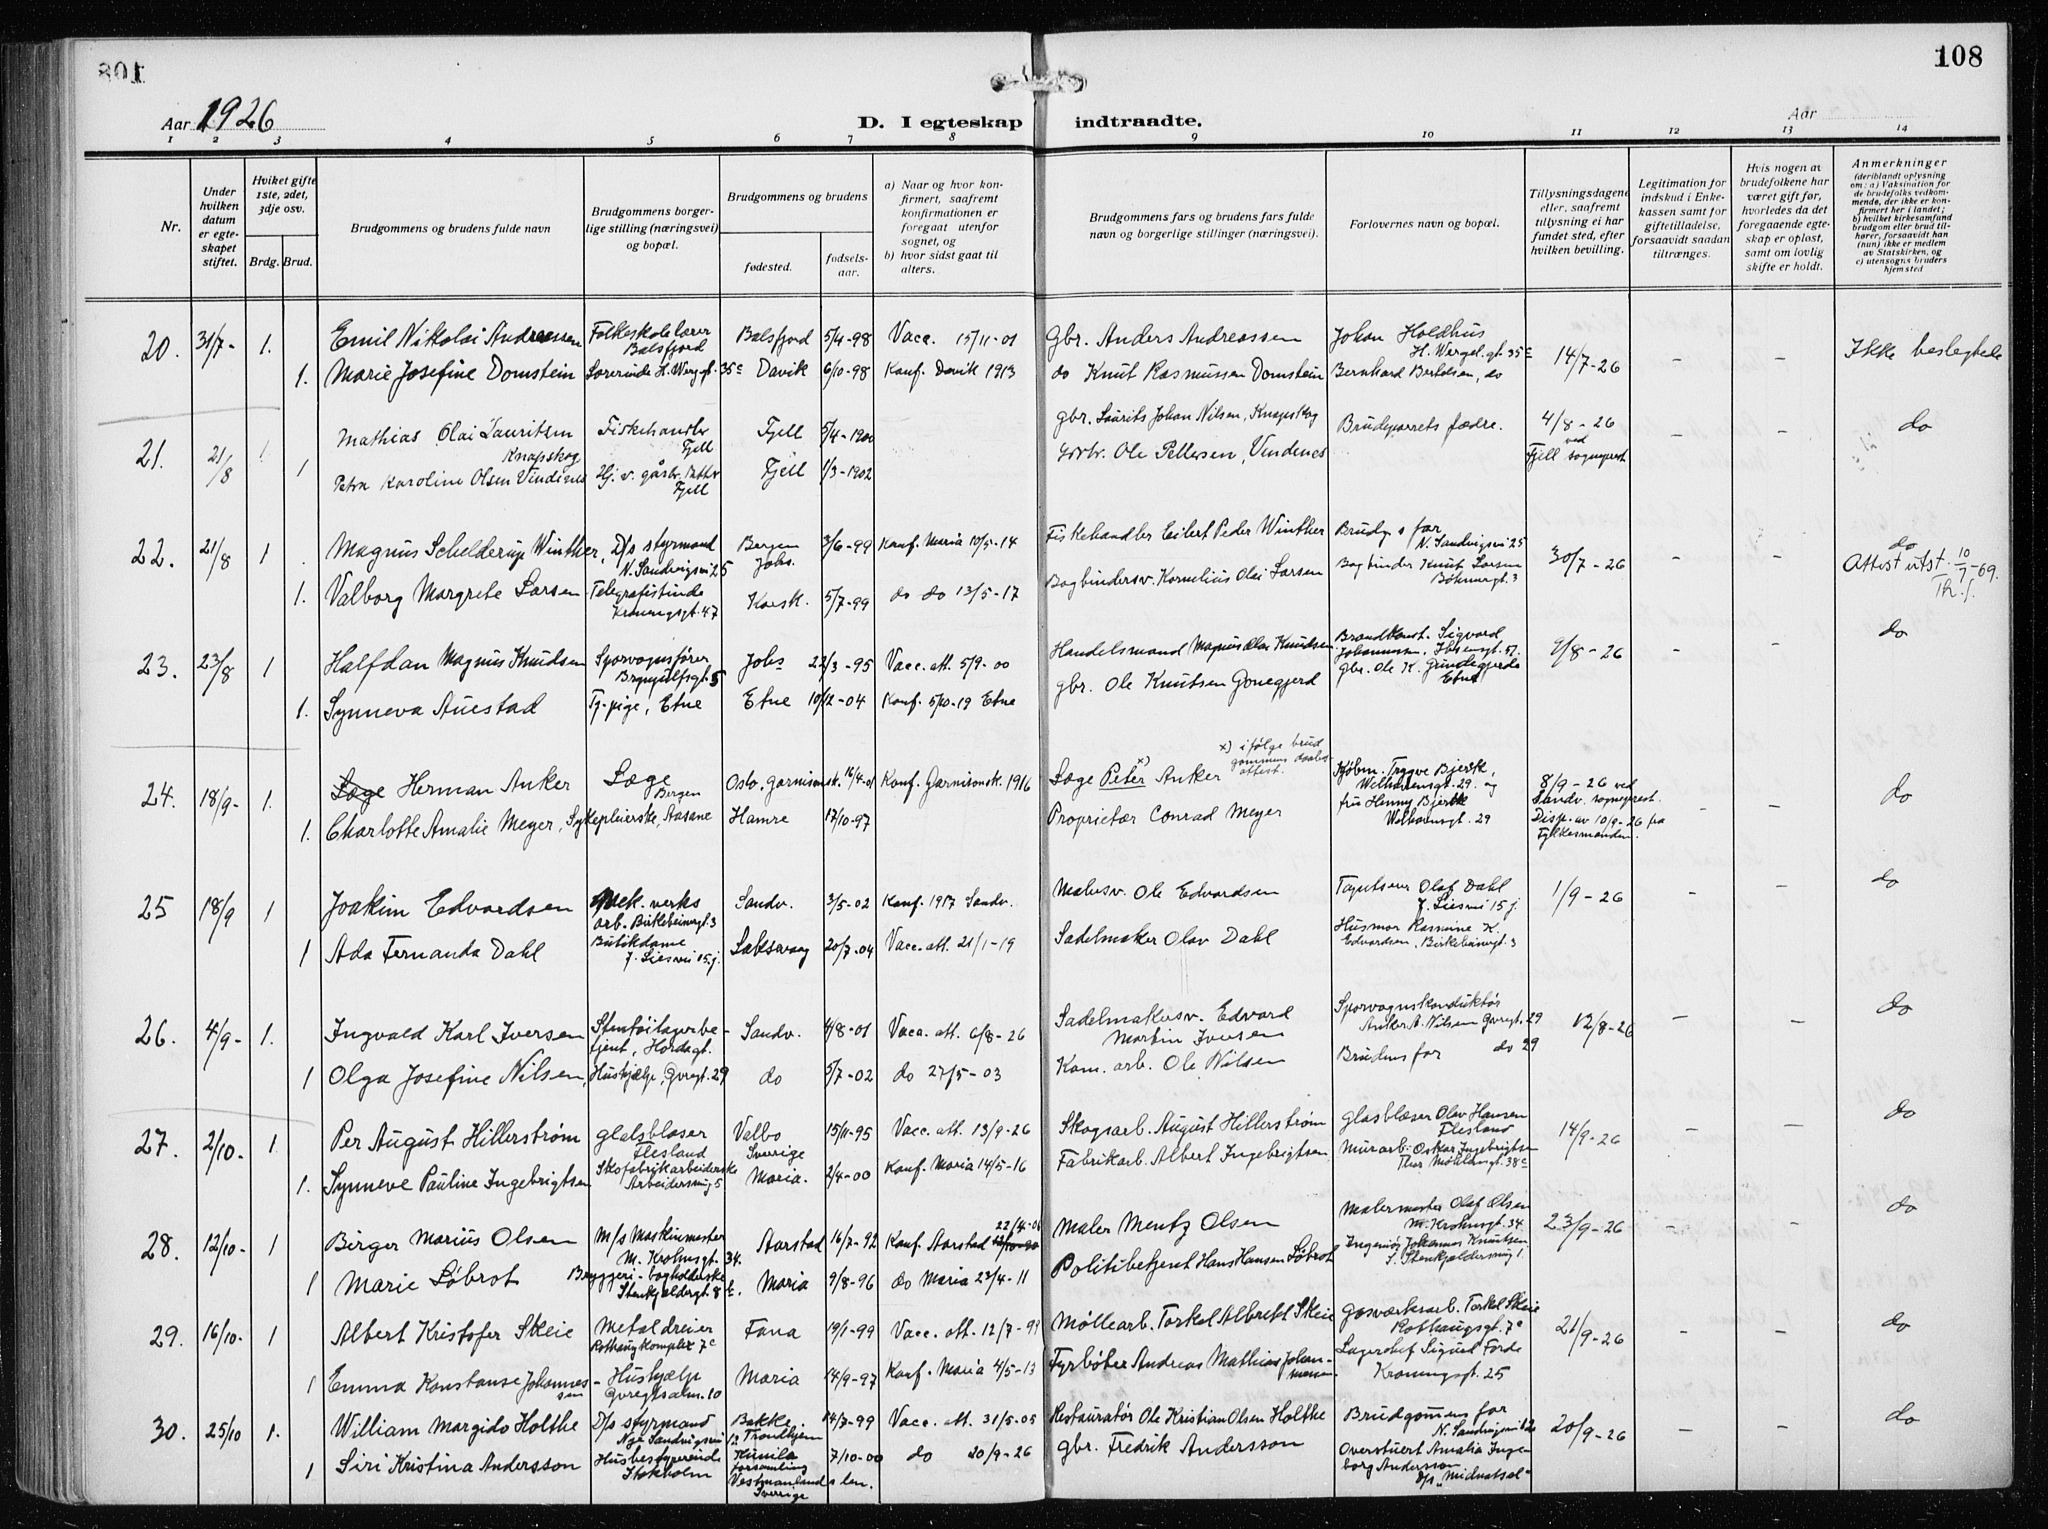 108
Aar 1926
D. I egteskap indtraadte.
Aar
1 2 3 4 5 6 7 8 9 10 11 12 13 14
Nr.
Under hvilken datum er egteskapet stiftet.
Hviket gifte 1ste, 2det, 3dje osv.
Brdg. Brud.
Brudgommens og brudens fulde navn
Brudgommens borgerlige stilling (næringsvei) og bopæl.
Brudgommens og brudens
fødested.
fødselsaar.
a) Naar og hvor konfirmert, saafremt konfirmationen er foregaat utenfor sognet, og
b) hvor sidst gaat til alters.
Brudgommens fars og brudens fars fulde navn og borgerlige stillinger (næringsvei).
Forlovernes navn og bopæl.
Tillysningsdagene eller, saafremt tillysning ei har fundet sted, efter hvilken bevilling.
Legitimation for indskud i Enkekassen samt for giftetilladelse, forsaavidt saadan tiltrænges.
Hvis nogen av brudefolkene har været gift før, hvorledes da det foregaaende egteskap er opløst, samt om lovlig skifte er holdt.
Anmerkninger (deriblandt oplysning om: a) Vaksination for de brudefolks vedkommende, der ikke er konfirmert her i landet; b) hvilket kirkesamfund brudgom eller brud tilhører, forsaavidt han (hun) ikke er medlem av Statskirken, og c) utensogns bruders hjemsted
20. 31/7- 1. Emil Nikolai Andreassen Folkeskolelærer Balsfjord Balsfjord 5/4-98 Vacc. 15/11-01 Gbr. Anders Andreassen Johan Holdhus H. Wergel.gt 35c 14/7-26 - - Ikke beslegtede
1. Marie Josefine Domstein Lærerinde H. Werg.gt. 35c Davik 6/10-98 Konf. Davik 1913 do Knut Rasmussen Domstein Bernhard Bertelsen, do
21. 21/8 1 Mathias Olai Lauritsen Knapskog Fiskehandler Fjell Fjell 5/4-1900 gbr. Laurits Johan Nilsen, Knapskog Brudeparrets fædre. 4/8-26 ved Fjell sogneprest - - do
1 Petra Karoline Olsen Vindenes Fjell Fjell 1/3-1902 Ole Pettersen, Vindenes
22. 21/8 1 Magnus Schelderup Winther, D/s styrmand N. Sandvigsvei 25 Bergen Johs. 3/6-99 Konf. Maria 10/5-14 Fiskehandler Eilert Peder Winther Brudg s far N. Sandvigsvei 25 30/7-26 - - do
1. Valborg Margrete Larsen Telegrafistinde Kroningsgt. 47 Korsk. 5/7-99 do do 13/5-17 Bogbindersv. Kornelius Olai Larsen Bogbinder Knut Larsen Bøhmergt. 3 Attest utst. 10/7-69. Th.S.
23. 23/8 1 Halfdan Magnus Knudsen Sporvognsfører Brynjulfsgt. 5 Johs 22/3-95 Vacc. att. 5/9-00 Handelsmand Magnus Olai Knudsen Brandkonst. Sigvard Johannessen, Ibsensgt. 57. 9/8-26 - - do
1. Synneva Auestad Tj.pige, Etne Etne 10/12-04 Konf. 5/10-19 Etne gbr. Ole Knutsen Gonegjerd gbr. Ole K. Grindegjerde Etne
24. 18/9- 1. Herman Anker Læge Bergen Oslo. Garnisonsk. 16/4-01 Konf. Garnisonsk. 1916 Læge Peter x) Anker x) ifølge brudgommens daabsattest. Kjøbm. Trygve Bjerck, Welhavensgt. 29. og 8/9-26 ved Sandv. sogneprest. - - do
1. Charlotte Amalie Meyer, Sykepleierske, Aasane Hamre 17/10-97 Proprietær Conrad Meyer fru Henny Bjerck Welhavensgt. 29 Disp. av 10/9-26 fra Fylkesmanden.
25 18/9 1 Joakim Edvardsen Mek. verksarb. Birkebeinergt. 3 Sandv. 3/5-02 Konf. 1917 Sandv. Malersv. Ole Edvardsen Olaf Dahl J. Liesvei 15 j. 1/9-26 - - do
1 Ada Fernanda Dahl Butikdame J. Liesvei 15 j. Laksevaag 20/7-04 Vacc. att. 21/1-19 Sadelmaker Olav Dahl Husmor Rasmine K. Edvardsen, Birkebeinergt. 3
26. 4/9- 1. Ingvald Karl Iversen Stentøilagerbetjent, Hordagt. Sandv. 4/8-01 Vacc. att. 6/8-26 Sadelmakersv. Edvard Martin Iversen Sporvognskonduktør Anker A. Nilsen Øvregt. 29 12/8-26 - - do
1 Olga Josefine Nilsen, Hushjælp, Øvregt. 29 do 5/7-02 do 27/5-03 Kom. arb. Ole Nilsen Brudens far do 29
27. 2/10- 1. Per August Hillerstrøm Glasblæser Flesland Valbo Sverige 15/11-95 Vacc. att. 13/9-26 Skogsarb. August Hillerstrøm Glasblæser Olav Hansen Flesland 14/9-26 - - do
1. Synneve Pauline Ingebrigtsen Skofabrikarbeiderske Arbeidersmug 5 Maria. 2/4-00 Konf. Maria 14/5-16 Fabrikarb. Albert Ingebrigtsen Murarb. Oskar Ingebrigtsen Thor Møhlensgt. 38c
28. 12/10- 1 Birger Marius Olsen M/s Maskinmester M. Krohnsgt. 34. Aarstad 16/7-92 Konf. Aarstad 22/4-06 Maler Mentz Olsen Malermester Olaf Olsen M. Krohnsgt. 34. 23/9-26 - - do
1 Marie Løbrot Bryggeri-bogholderske Stenkjeldergt. 8 Maria 9/8-96 do Maria 23/4-11 Politibetjent Hans Hansen Løbrot Ingeniør Johannes Knutsen L. Stenkjeldersmug 1.
29. 16/10- 1 Albert Kristofer Skeie Metaldreier Rothaugkomplex 7c Fana 19/1-99 Vacc. att. 12/7-99 Møllearb. Torkel Albrekt Skeie Gasværksarb. Torkel Skeie Rothaugsgt. 7c 21/9-26 - - do
1 Emma Konstanse Johannessen - Hushjælp Øvregtsalm. 10 Maria 14/9-97 Konf. Maria 4/5-13 Fyrbøter Andreas Mathias Johannessen Lagerchef Sigurd Førde Kroningsgt. 25
30. 25/10 1. William Margido Holthe D/s styrmand Nye Sandvigsvei 12 Bakke, Trondhjem 14/7-99 Vacc. att. 31/5-05 Restauratør Ole Kristian Olsen Holthe Brudgomens far N. Sandvigsvei 12 20/9-26 - - do
1 Siri Kristina Andersson Husbestyrerinde Stokholm Kumla forsamling Vestmanlands len. Sverige 7/10-00 do 20/9-26 gbr. Fredrik Andersson Overstuert Amalia Ingeborg Andersson D/s "Midnatsol"